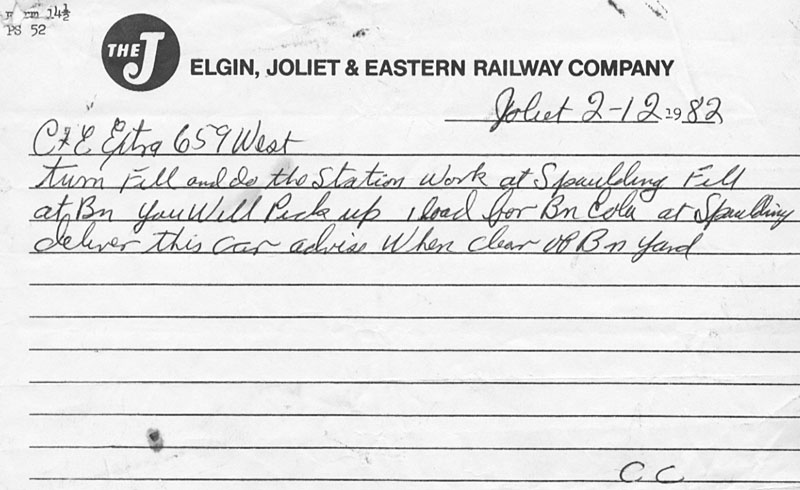 rm 14½
PS 52
THE J
ELGIN, JOLIET & EASTERN RAILWAY COMPANY
Joliet 2-12 1982
C&E Extra 659 West
turn Fill and do the Station Work at Spaulding Fill
at Bn You Will Pick up 1 load for Bn Cola at Spaulding
deliver this car advise When clear of Bn Yard
CC